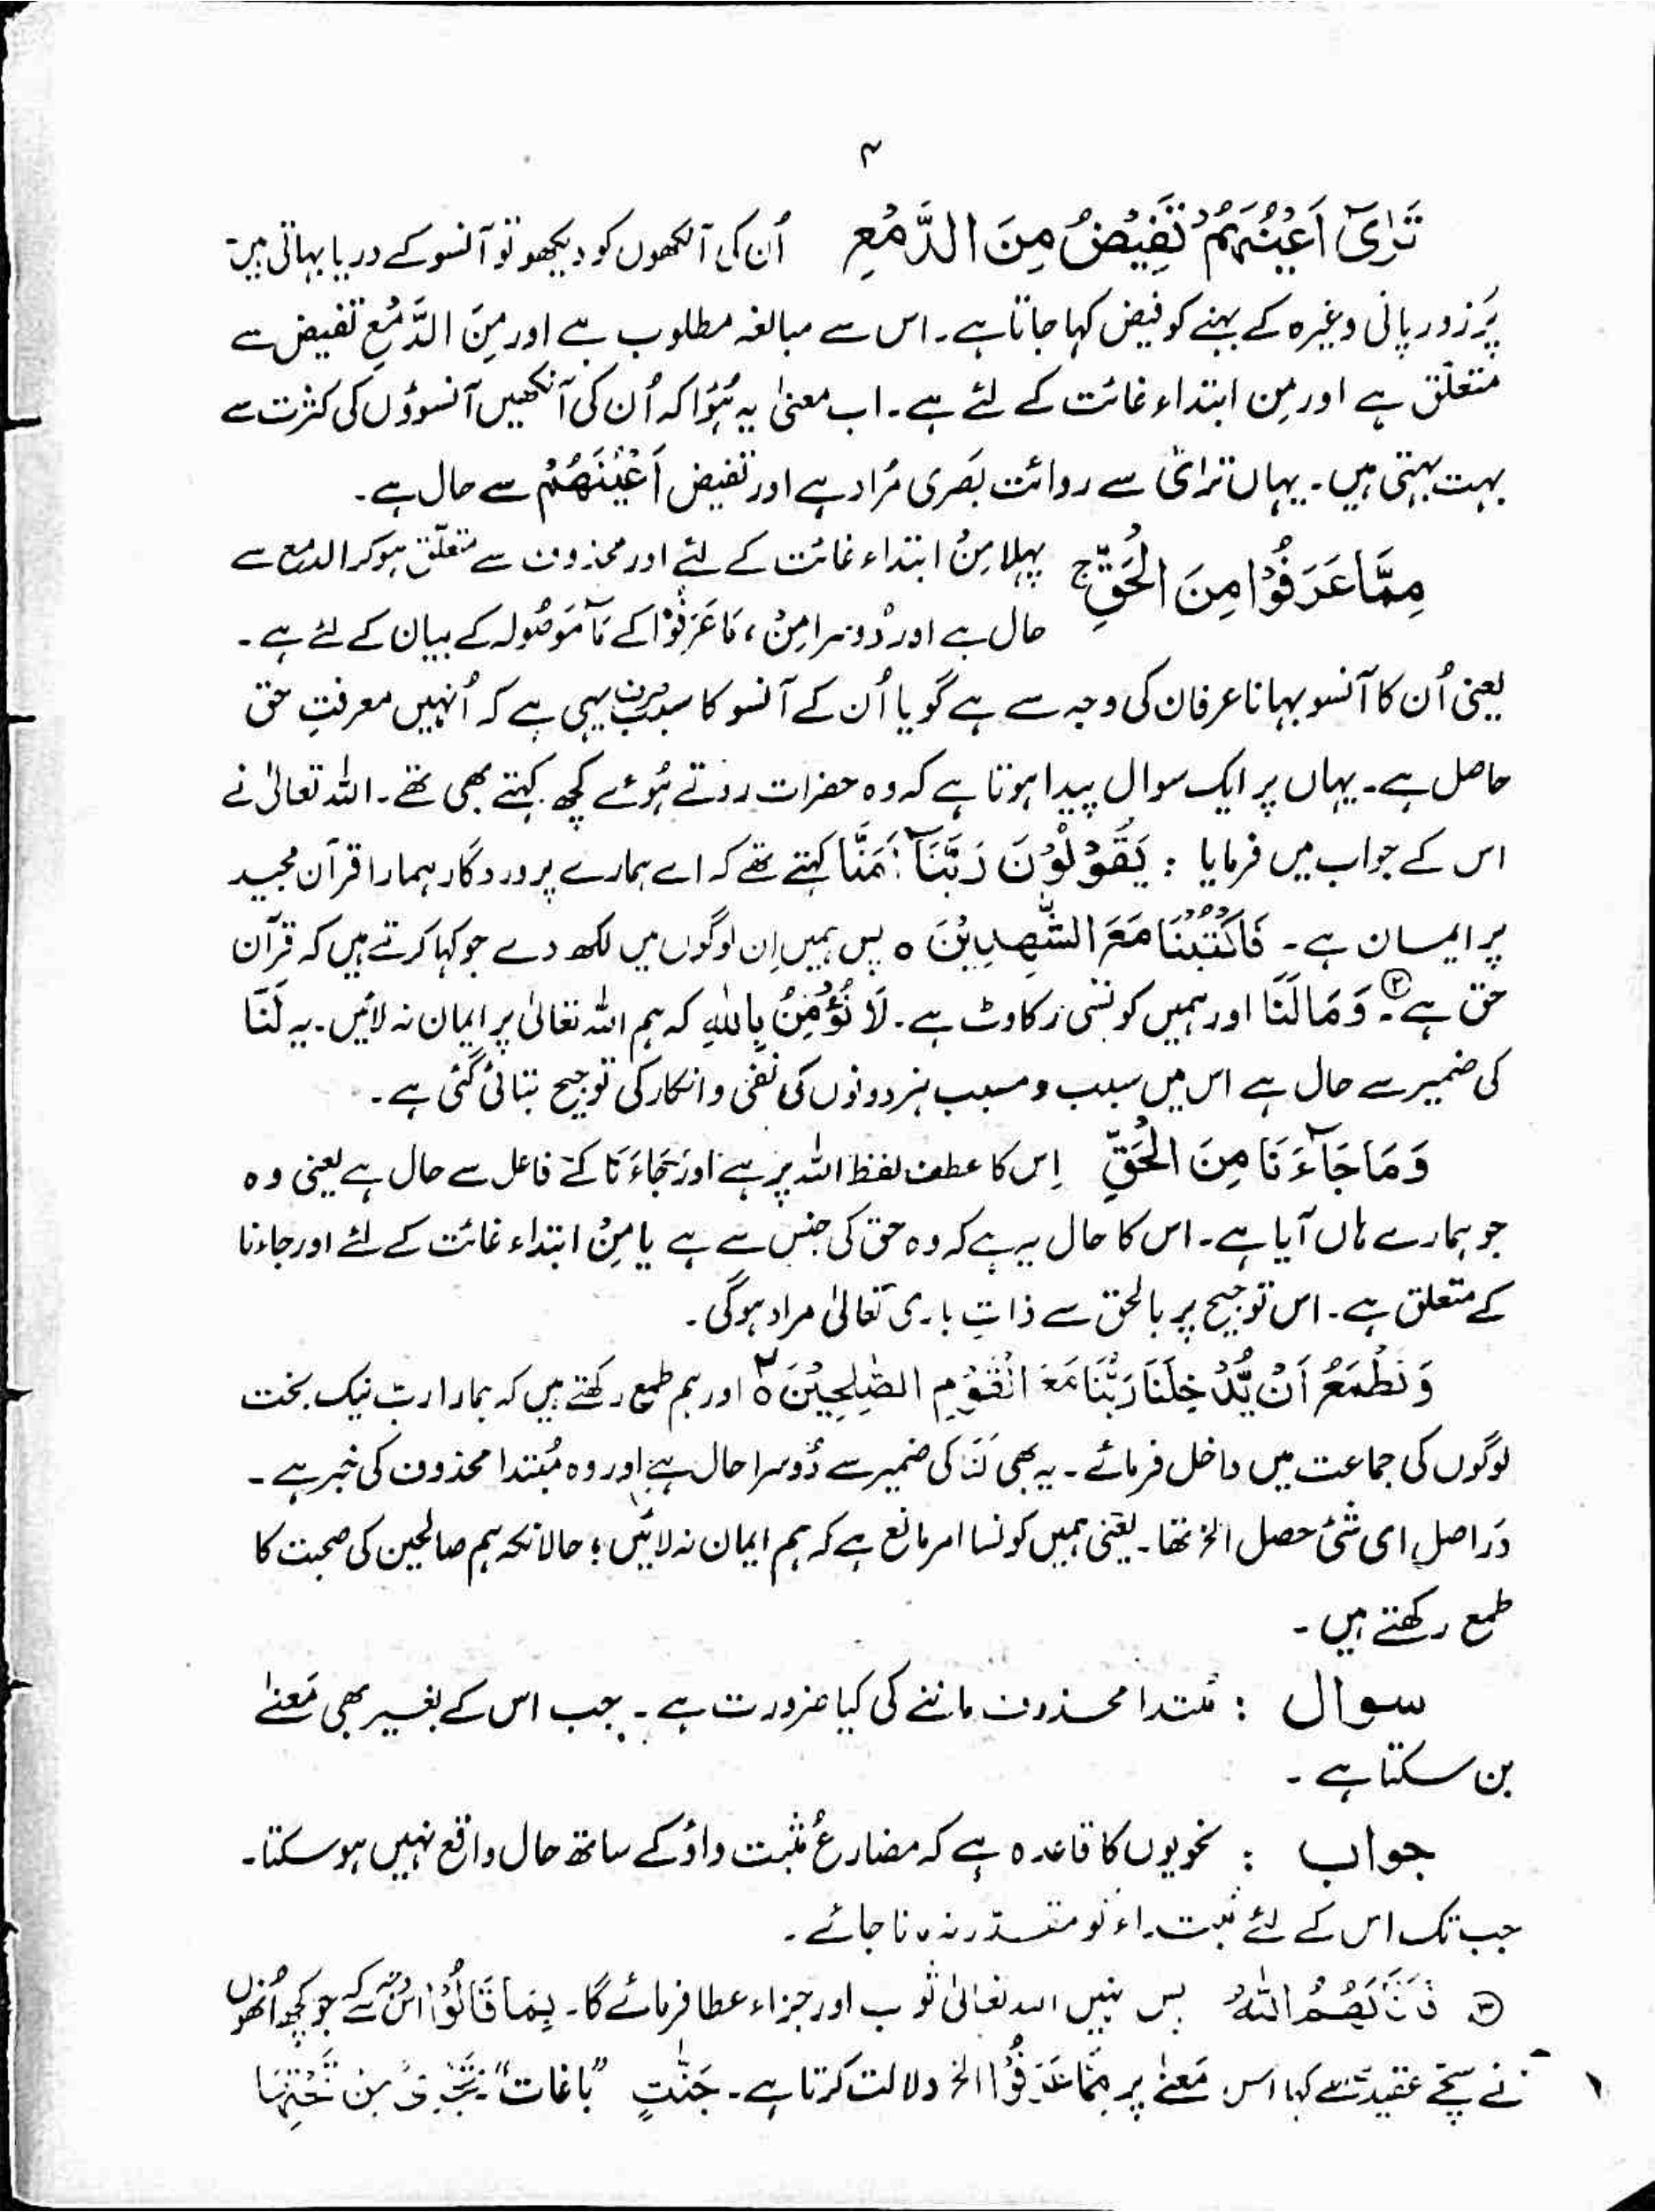 ۴
تَرٰۤى اَعْیُنَہُمْ تَفِیْضُ مِنَ الدَّمْعِ اُن کی آنکھوں کو دیکھو تو آنسو کے دریا بہاتی ہیں۔
پُر زور پانی وغیرہ کے بہنے کو فیض کہا جاتا ہے۔ اس سے مبالغہ مطلوب ہے اور مِنَ الدَّمْعِ تفیض سے
متعلّق ہے اور مِن ابتداء غائت کے لئے ہے۔ اب معنیٰ یہ ہُوَا کہ اُن کی آنکھیں آنسوؤں کی کثرت سے
بہت بہتی ہیں۔ یہاں تَرٰیٓ سے روائت بَصَری مُراد ہے اور تفیض اَعْیُنَھُمْ سے حال ہے۔
مِمَّا عَرَفُوْا مِنَ الْحَقِّ ج پہلا مِنْ ابتداء غائت کے لئے اور محذوف سے متعلّق ہو کر الدمع سے
حال ہے اور دُوسرا مِنْ، مَا عَرَفُوْا کے مَآ مَوصُولہ کے بیان کے لئے ہے۔
یعنی اُن کا آنسو بہانا عرفان کی وجہ سے ہے گویا اُن کے آنسو کا سبب صرف یہی ہے کہ اُنہیں معرفتِ حق
حاصل ہے۔ یہاں پر ایک سوال پیدا ہوتا ہے کہ وہ حضرات روتے ہُوئے کچھ کہتے بھی تھے۔ اللہ تعالیٰ نے
اس کے جواب میں فرمایا : یَقُوْلُوْنَ رَبَّنَاۤ اٰمَنَّا کہتے تھے کہ اے ہمارے پروردگار ہمارا قرآن مجید
پر ایمان ہے۔ فَاكْتُبْنَا مَعَ الشّٰھِدِیْنَ ٥ پس ہمیں اِن لوگوں میں لکھ دے جو کہا کرتے ہیں کہ قرآن
حق ہے۔ ② وَمَا لَنَا اور ہمیں کونسی رکاوٹ ہے۔ لَا نُؤْمِنُ بِاللّٰهِ کہ ہم اللہ تعالیٰ پر ایمان نہ لائیں۔ یہ لَنَا
کی ضمیر سے حال ہے اس میں سبب و مسبب ہر دونوں کی نفی و انکار کی توجیح بتائی گئی ہے۔
وَمَا جَآءَنَا مِنَ الْحَقِّ اِس کا عطف لفظ اللہ پر ہے اور جَاءَنَا کے فاعل سے حال ہے یعنی وہ
جو ہمارے ہاں آیا ہے۔ اس کا حال یہ ہے کہ وہ حق کی جنس سے ہے یا مِنْ ابتداء غائت کے لئے اور جاءنا
کے متعلق ہے۔ اس توجیح پر بالحق سے ذاتِ باری تعالیٰ مراد ہوگی۔
وَنَطْمَعُ اَنْ یُّدْخِلَنَا رَبُّنَا مَعَ الْقَوْمِ الصّٰلِحِیْنَ ٥ اور ہم طمع رکھتے ہیں کہ ہمارا ربّ نیک بخت
لوگوں کی جماعت میں داخل فرمائے۔ یہ بھی لَنَا کی ضمیر سے دُوسرا حال ہے اور وہ مُبتدا محذوف کی خبر ہے۔
دَراصل ای شئ حصل الخ تھا۔ یعنی ہمیں کونسا امر مانع ہے کہ ہم ایمان نہ لائیں؛ حالانکہ ہم صالحین کی صحبت کا
طمع رکھتے ہیں۔
سوال : مُبتدا محذوف ماننے کی کیا ضرورت ہے۔ جب اس کے بغیر بھی مَعنےٰ
بن سکتا ہے۔
جواب : نحویوں کا قاعدہ ہے کہ مضارعُ مثبت واؤ کے ساتھ حال واقع نہیں ہو سکتا۔
جب تک اس کے لئے مُبتداء کو مقدّر نہ مانا جائے۔
③ فَاَثَابَھُمُ اللّٰهُ پس انہیں اللہ تعالیٰ ثواب اور جزاء عطا فرمائے گا۔ بِمَا قَالُوْا اس سے کہ جو کچھ اُنھوں
نے سچّے عقیدت سے کہا اس مَعنےٰ پر مِمَّا عَرَفُوْا الخ دلالت کرتا ہے۔ جَنّٰتٍ "باغات" تَجْرِیْ مِنْ تَحْتِہَا